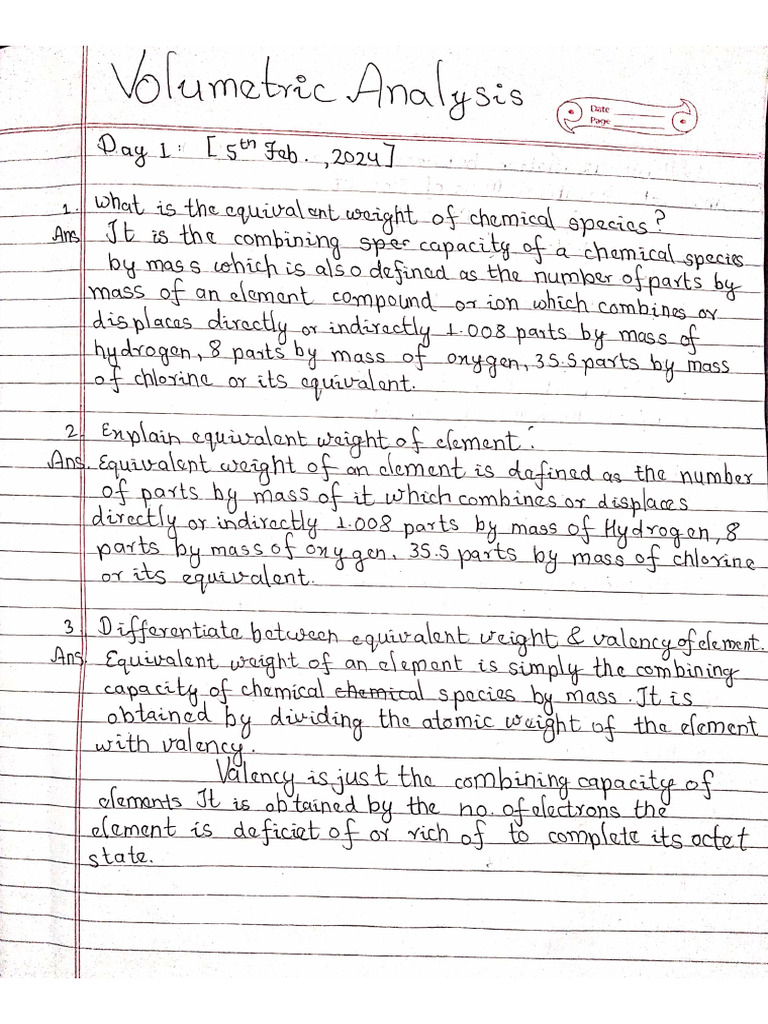 Volumetric Analysis
Date
Page
Day 1: [5th Feb., 2024]
1. What is the equivalent weight of chemical species?
Ans It is the combining sper capacity of a chemical species
by mass which is also defined as the number of parts by
mass of an element compound or ion which combines or
displaces directly or indirectly 1.008 parts by mass of
hydrogen, 8 parts by mass of oxygen, 35.5 parts by mass
of chlorine or its equivalent.
2. Explain equivalent weight of element.
Ans. Equivalent weight of an element is defined as the number
of parts by mass of it which combines or displaces
directly or indirectly 1.008 parts by mass of Hydrogen, 8
parts by mass of oxygen, 35.5 parts by mass of chlorine
or its equivalent.
3 Differentiate between equivalent weight & valency of element.
Ans Equivalent weight of an element is simply the combining
capacity of chemical chemical species by mass. It is
obtained by dividing the atomic weight of the element
with valency.
Valency is just the combining capacity of
elements It is obtained by the no. of electrons the
element is deficiet of or rich of to complete its octet
state.